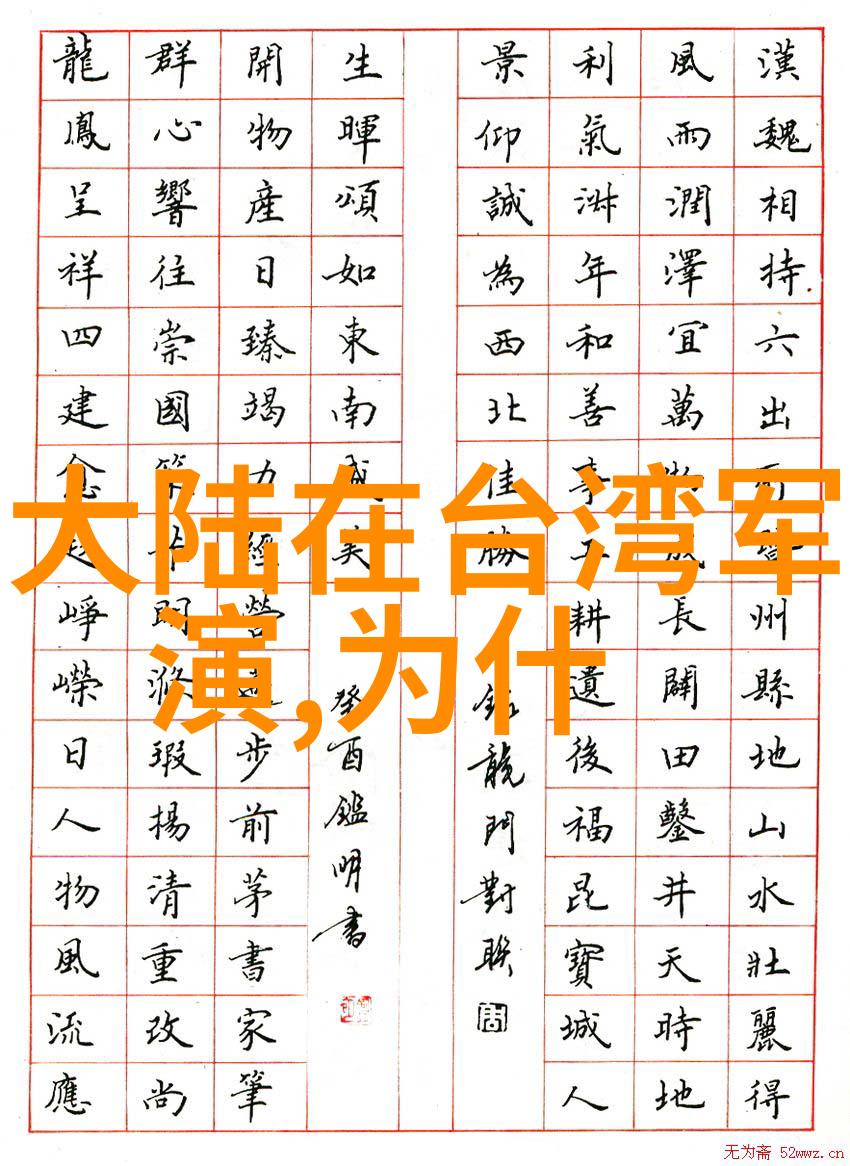 大陆在台湾军
演,为什
漢魏相持六出州縣地山水壯麗得
風雨潤澤宜萬成長闢田鑿井天時地
利氣淋年和善事工耕遺後福昆寶城人
景仰誠為西北佳勝
錄龍門對聯
生暉頌如東南美
癸酉鑑明書
開物產日臻竭力經營步前茅書家筆
群心響往崇國開滌瑕揚清重改尚
龍鳳呈祥四建念崢嶸日人物風流應
无为斋 52wwz.cn